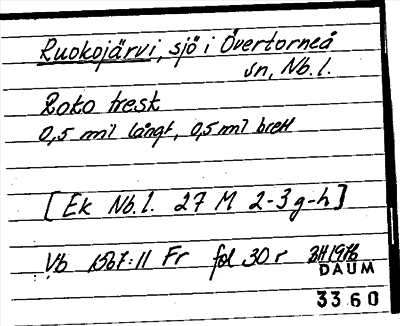 Ruokojärvi, sjö i Övertorneå
sn, Nb.l.
Roko tresk
0,5 mil långt, 0,5 mil brett
[Ek Nb.l. 27 M 2-3 g-h]
Vb 1567:11 Fr fol 30 r BH 1976
DAUM
3360